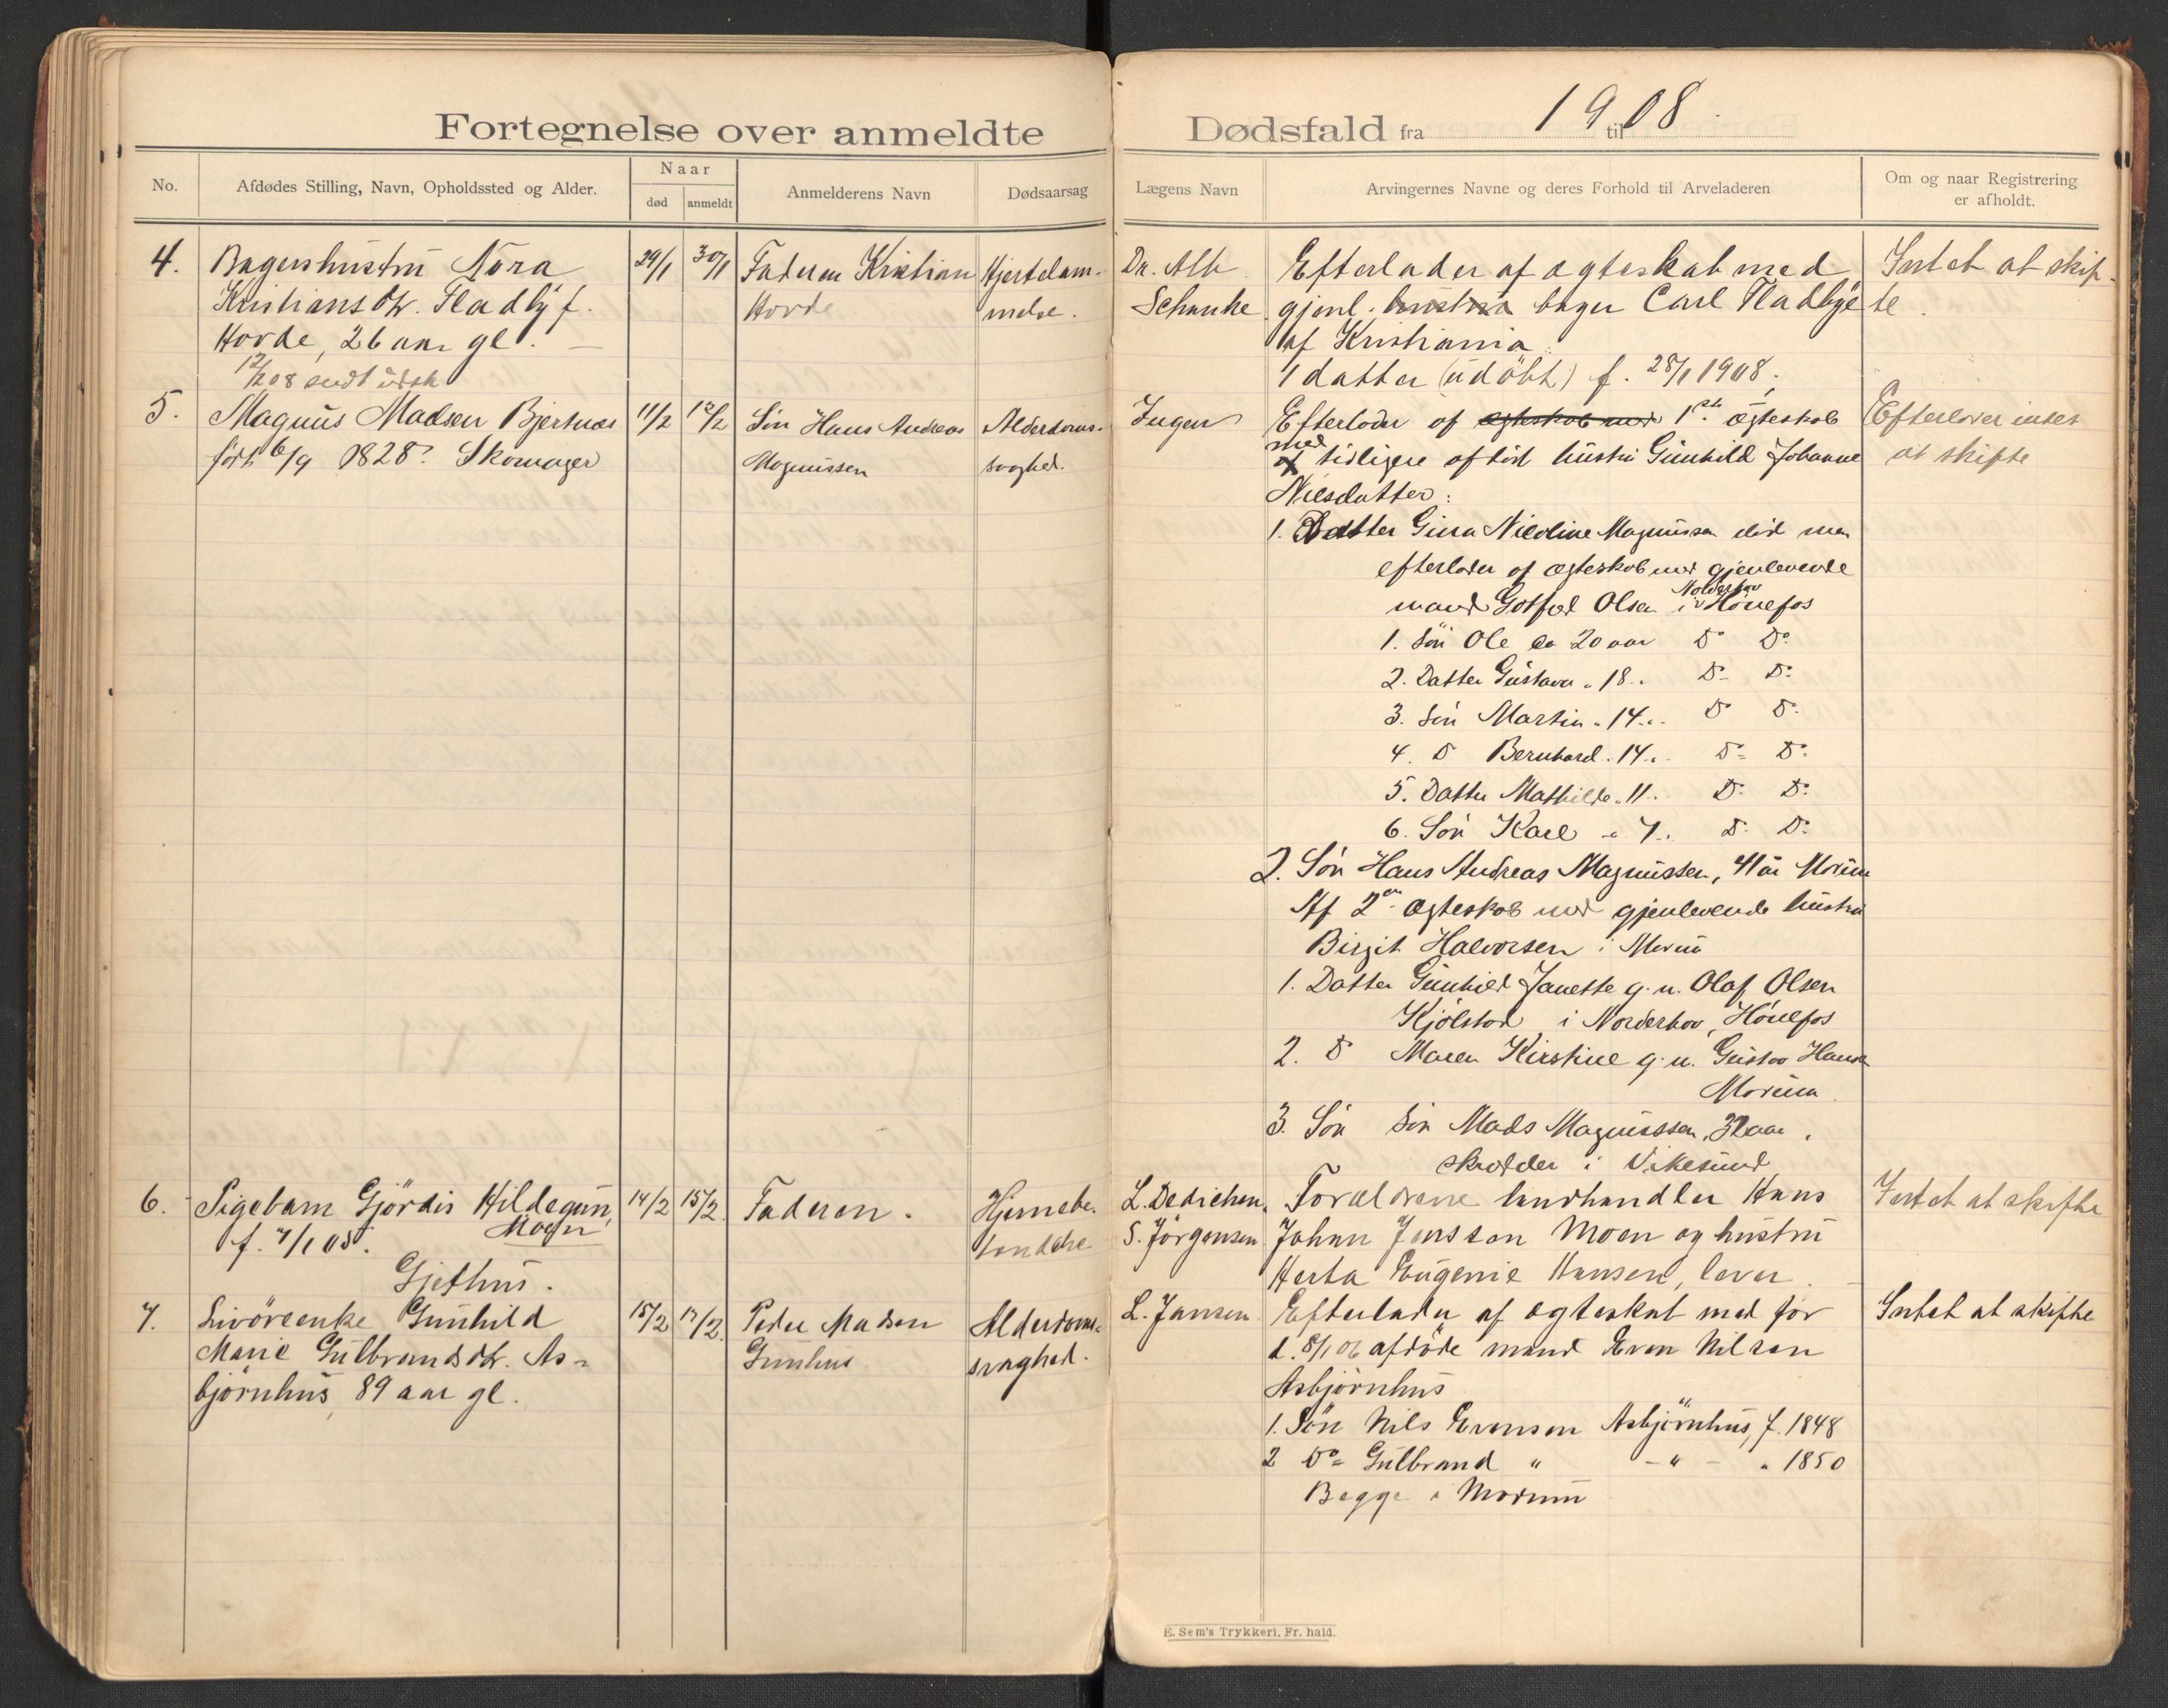 Fortegnelse over anmeldte
Dødsfald fra 1908 til
No.
Afdødes Stilling, Navn, Opholdssted og Alder.
Naar
død
anmeldt
Anmelderens Navn
Dødsaarsag
Lægens Navn
Arvingernes Navne og deres Forhold til Arveladeren
Om og naar Registrering
er afholdt.
4.
Bagershustru Nora
Kristiansdtr. Fladby f.
Horde, 26 aar gl.
12/2 08 sendt
29/1
30/1
Faderen Kristian
Horde
Hjertelam-
melse.
Dr. Alb
Schanke
Efterlader af ægteskab med
gjenl. hustru bager Carl Fladbye
af Kristiania
1 datter (udöbt) f. 28/1 1908.
Intet at skif-
te.
5.
Magnus Madsen Bjertnæs
født 6/9 1828. Skomager
11/2
12/2
Sön Hans Andreas
Magnussen
Alderdoms-
svaghed.
Ingen
Efterlader af ægteskab med 1ste ægteskab
med tidligere afdöd hustru Gunhild Johanne
Nilsdatter:
1. Datter Gina Nicoline Magnussen död men
efterlader af ægteskab med gjenlevende
mand Gotfred Olsen i Norderhov Hönefos
1. Sön Ole ca 20 aar Do Do
2. Datter Gustava " 18 " Do Do
3. Sön Martin " 14 " Do Do
4. Do Bernhard " 14 " Do Do
5. Datter Mathilde " 11 " Do Do
6. Sön Karl " 7 " Do Do
2. Sön Hans Andreas Magnussen, 41 år Modum
Af 2et ægteskab med gjenlevende hustru
Birgit Halvorsen i Modum
1. Datter Gunhild Janette g. m. Olaf Olsen
Kjölstad i Norderhov, Hönefos
2. Do Maren Kirstine g. m. Gustav Hansen
Modum
3. Sön Sön Mads Magnussen, aar,
skrædder i Vikesund
Efterlader intet
at skifte
6.
Pigebarn Gjördis Hildegun,
Moen
f. 7/1 05.
Gjethus.
14/2
15/2
Faderen.
Hjernebe-
tændelse
L. Dedichen,
S. Jörgensen
Forældrene landhandler Hans
Johan Jensson Moen og hustru
Herta Eugenie Hansen, lever.
Intet at skifte
7.
Livöreenke Gunhild
Marie Gulbrandsdtr. As-
björnhus, 89 aar gl.
15/2
17/2
Peder Madsen
Gunhus
Alderdoms-
svaghed.
L. Jansen
Efterlader af ægteskab med för
d. 8/1 06 afdöde mand Even Nilsen
Asbjörnhus
1. Sön Nils Evensen Asbjörnhus, f. 1848
2 Do Gulbrand " - " - " 1850
Begge i Modum
Intet at skifte
E. Sem's Trykkeri, Fr. hald.